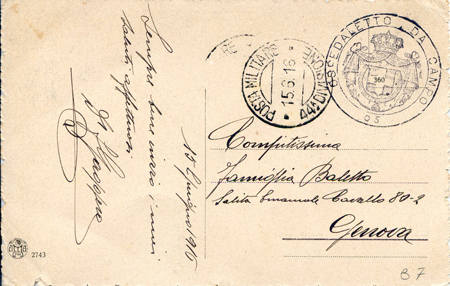 Sempre bene invio i miei
saluti affettuosi
15 Giugno 1916
POSTA MILITARE
15.6.16
44 DIVISIONE
OSPEDALETTO DA CAMPO
360
95
Compitissima
Famiglia Baletto
Salita Emanuele Cavallo 80-2
Genova
2743
B 7